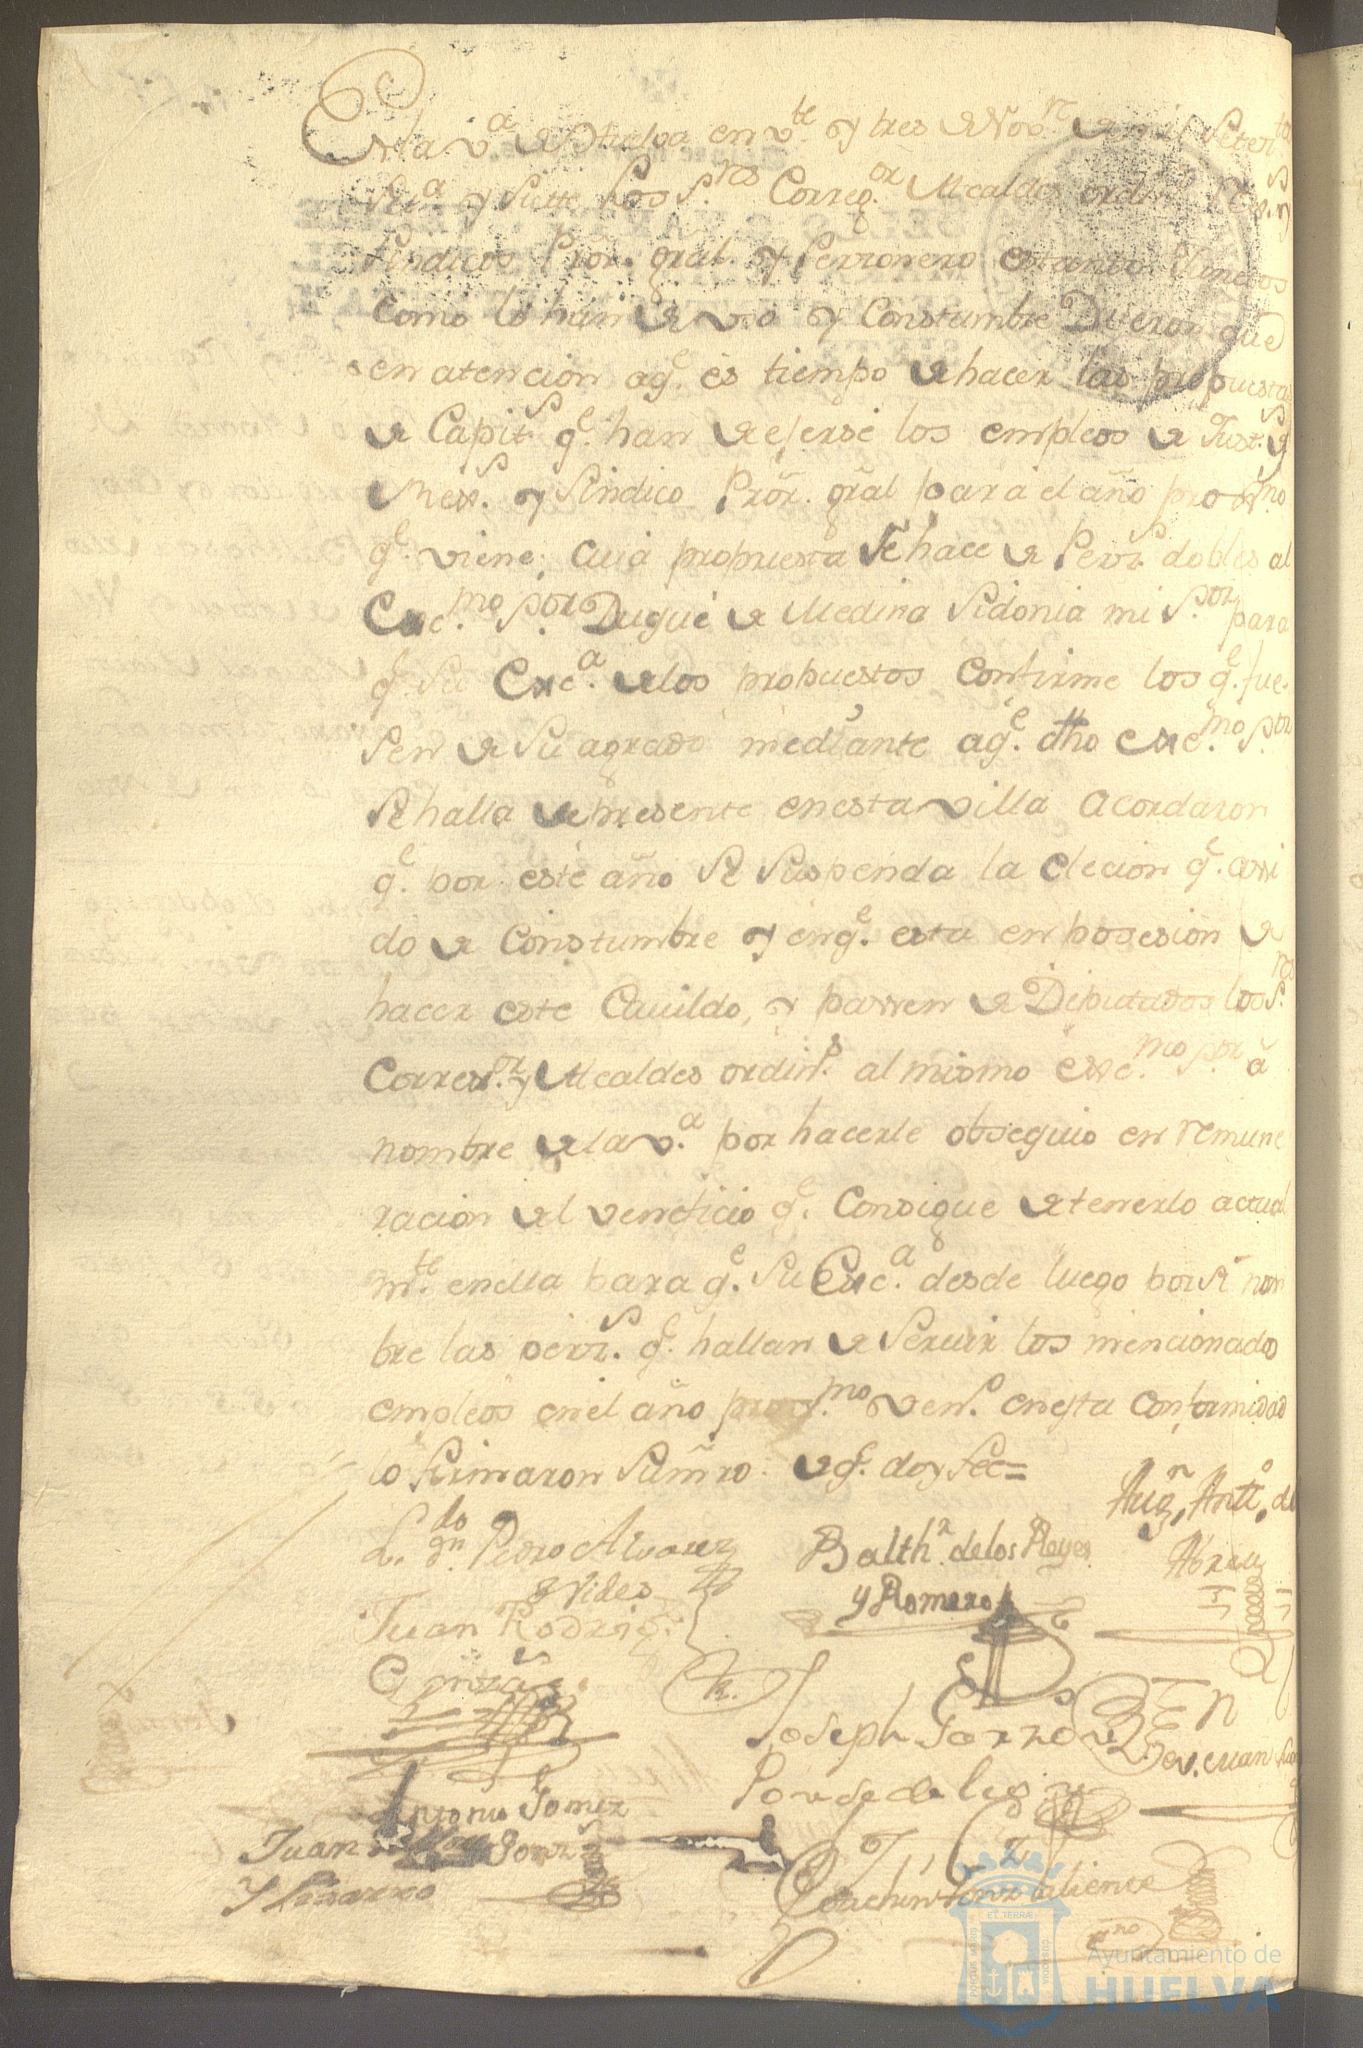 En la v.ª de Huelva en v.te y tres de Nov.re de mil Setec.tos
Sein.ª y Siette Los S.res Correg.or Alcaldes ordin.s Rex.s y
Sindicos Pror. gral. y Perzonero estando Juntos
como lo han de uso y Constumbre Dijeron que
en atencion aq.e es tiempo de hacer las propuestas
de Capit.s q.e han de ejerse los empleos de Just.s y
Rex.s y Sindico Pror. gral para el año prox.mo
q.e viene; cuia propuesta se hace de Perz.s dobles al
Exc.mo S.or Duque de Medina Sidonia mi S.or para
q.e Su Exc.a de los propuestos Confirme los q.e fue-
sen de Su agrado mediante aq.e dho exc.mo S.or
se halla de presente en esta villa Acordaron
q.e por este año Se Suspenda la elecion q.e
do de Constumbre y enq.e esta en posesion de
hacer este Cauildo, y passen de Diputados los S.res
Correx.or y Alcaldes ordin.s al mismo exc.mo S.or à
nombre de la v.a por hacerle obsequio en remune
racion del veneficio q.e Consigue de tenerlo actual
m.te en ella para q.e Su Exc.a desde luego por si nom
bre las perz.s q.e hallan de Seruir los mencionados
empleos en el año prox.mo ven.o en esta conformidad
lo firmaron Sumro. de q.e doy fee=
L.do Dn Pedro Alvarez
y Vides
Balth.r de los Reyes
y Romero
Aug.n Ant.o de
Abreu
Juan Rodrig.
Joseph Garzon
Ponse de Leon
Antonio Gomez
Juan Gonz
y Pizarro
Joachin Gonz
ss.no
Ayuntamiento de
HUELVA